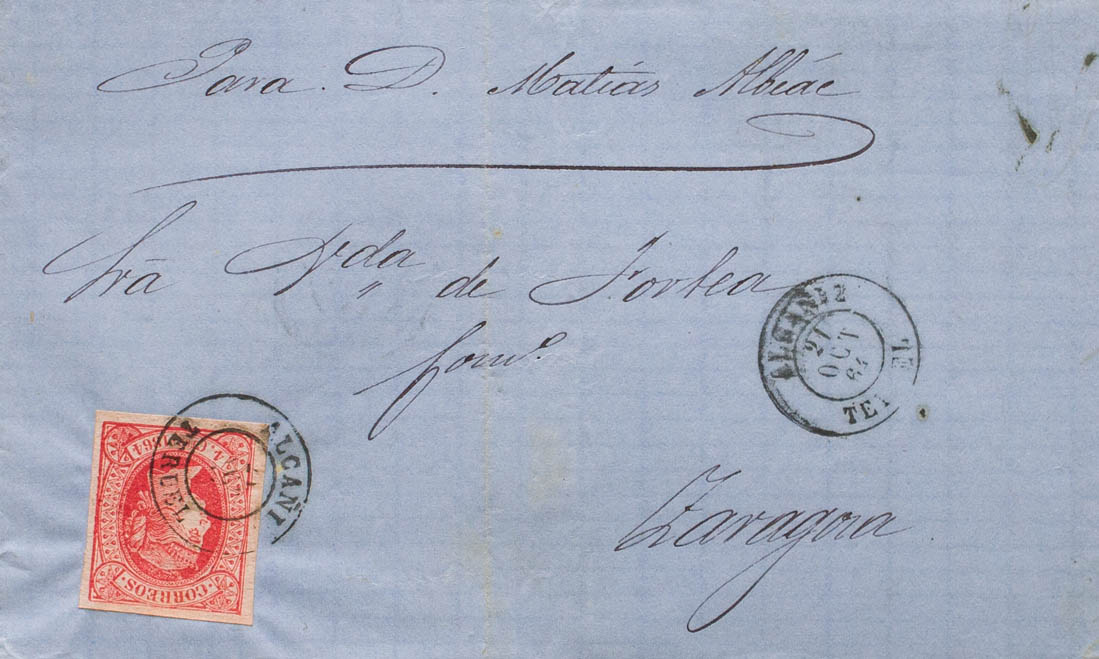 Para. D. Matías Albiác
Srā Vda de Fortea
Zaragoza
ALCAÑIZ
21
OCT
64
TERUEL
ALCAÑI
TERUEL
CORREOS